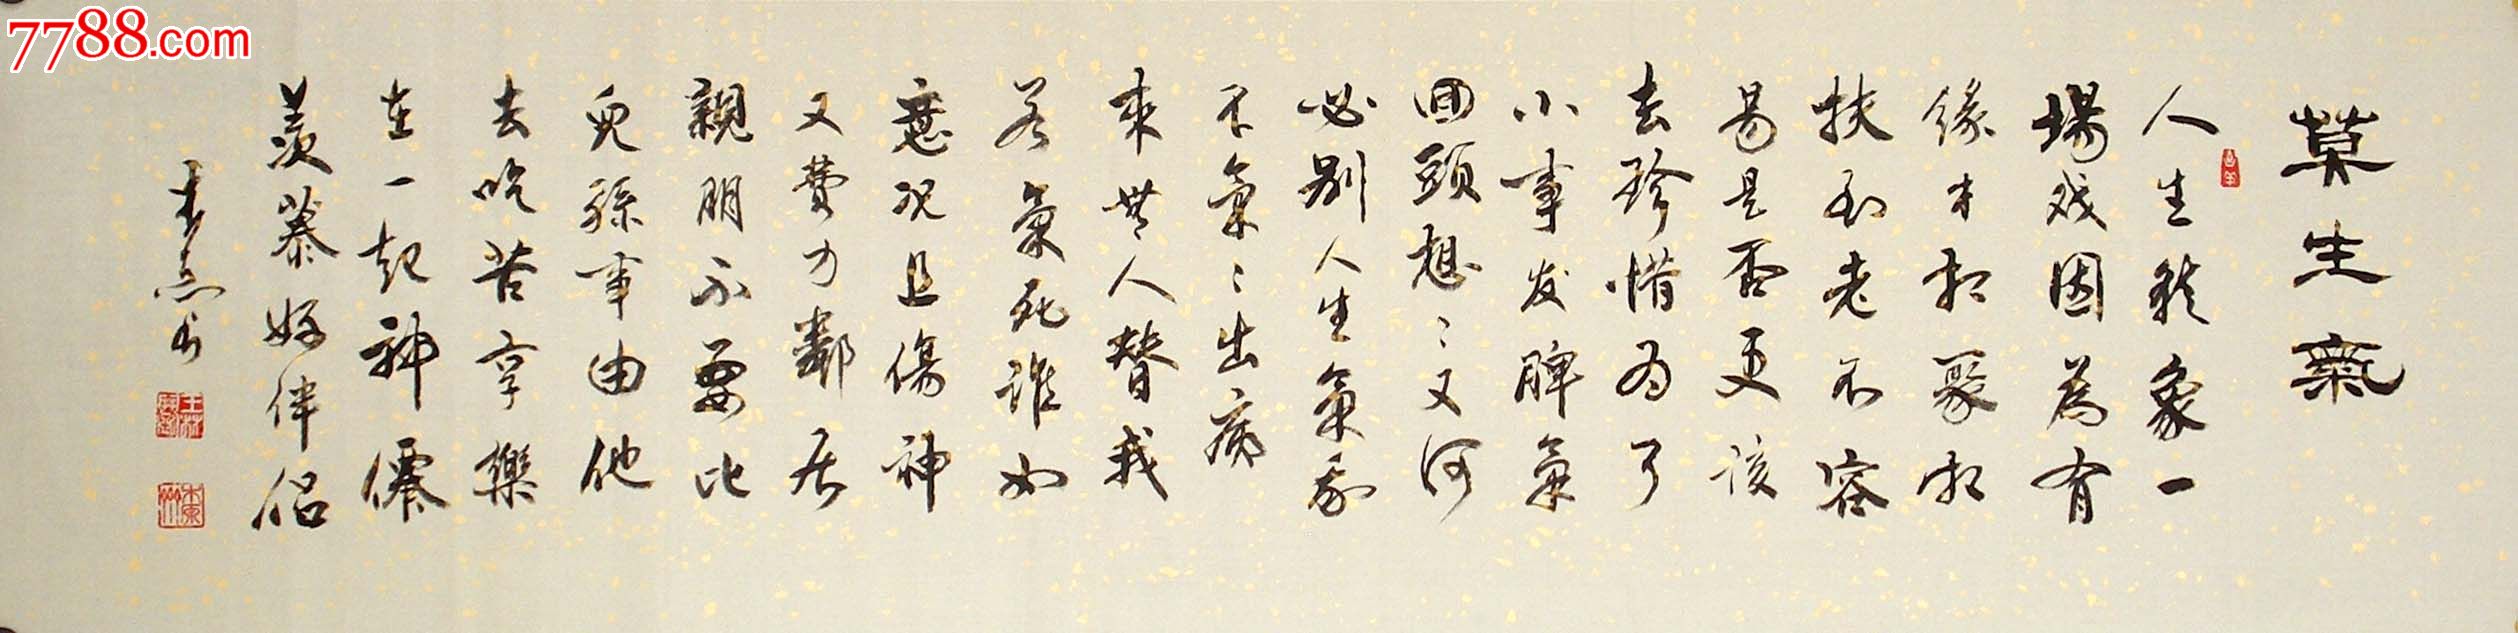 莫生氣
人生就象一
場戏因為有
緣才相聚相
扶到老不容
易是否更该
去珍惜为了
小事发脾氣
回頭想〻又何
必别人生氣我
不氣〻出病
来無人替我
若氣死谁如
意况且傷神
又費力鄰居
親朋不要比
兒孫事由他
去吃苦享樂
在一起神僊
羡慕好伴侣
7788.com